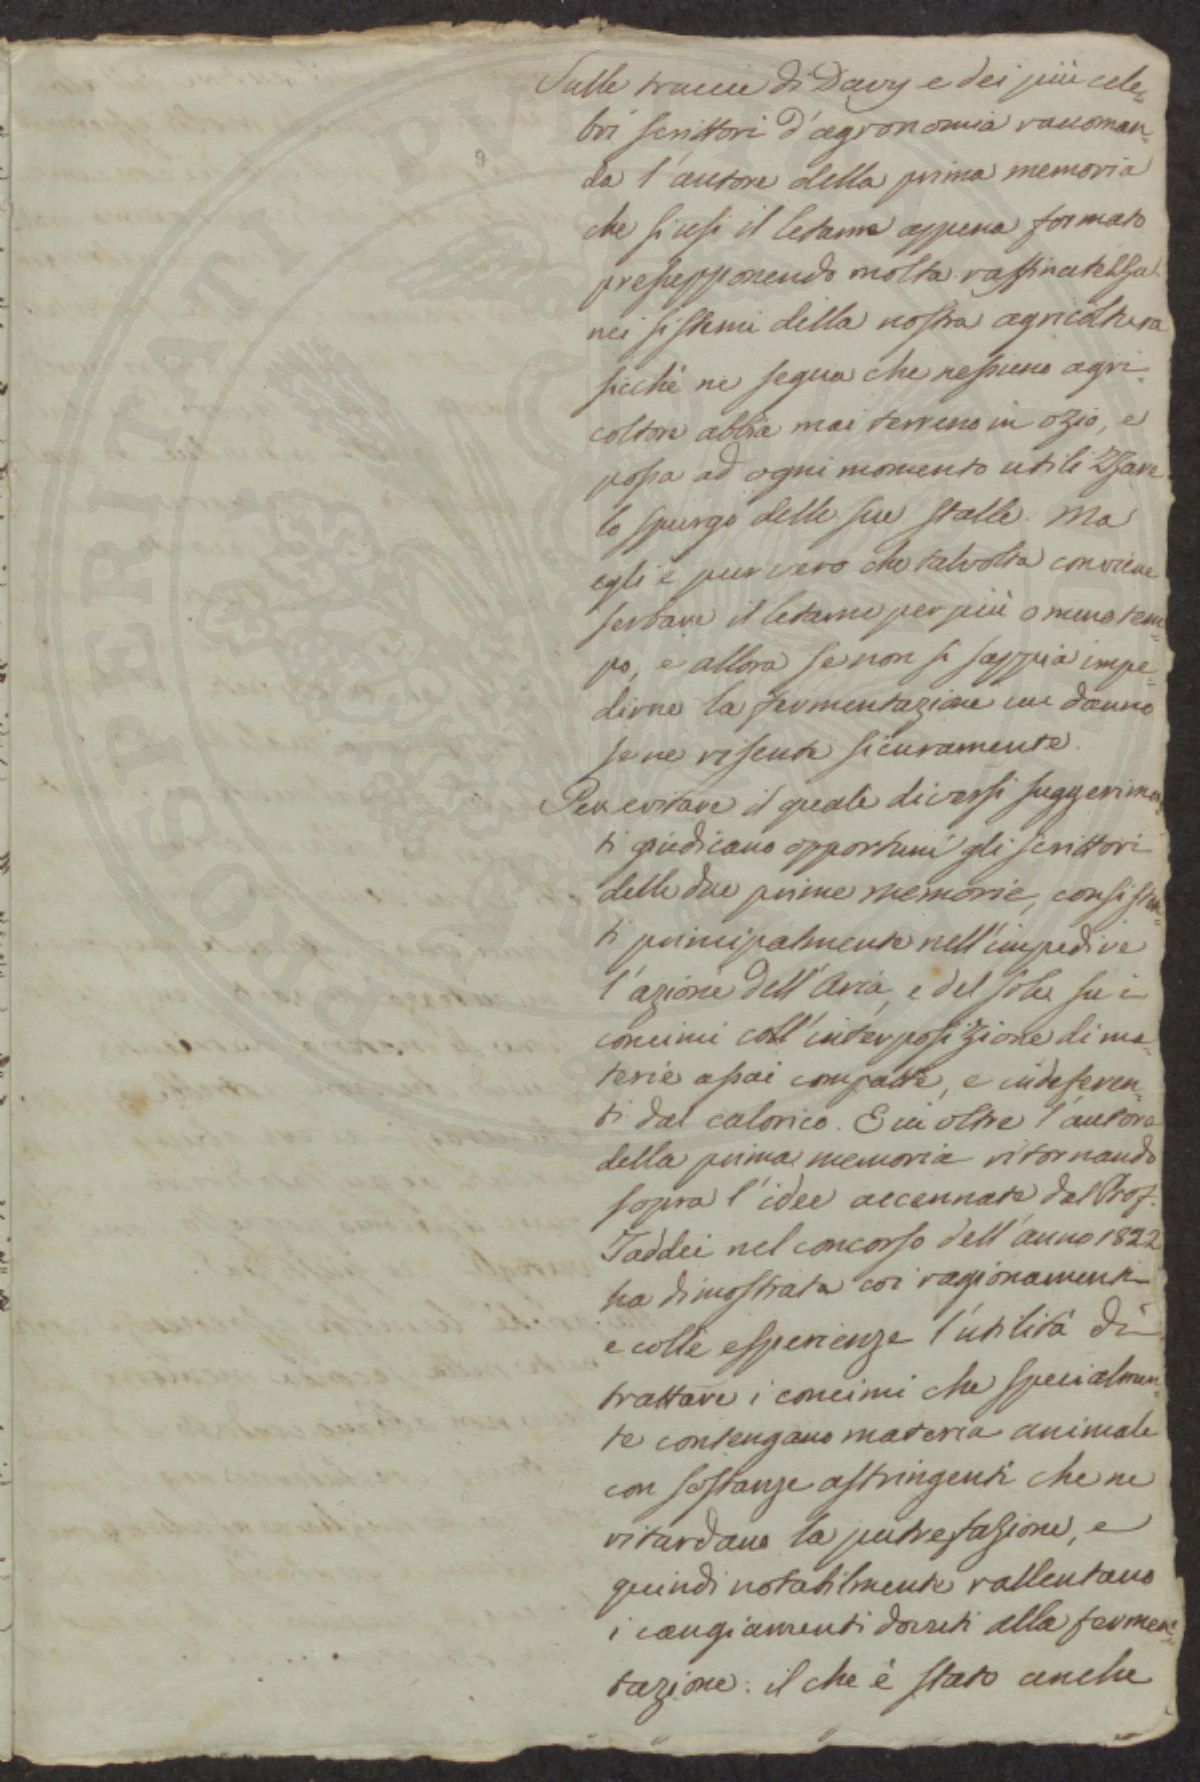 Sulle traccie di Davy e dei più cele-
bri scrittori d'agronomia raccoman-
da l'autore della prima memoria
che si usi il letame appena formato
presupponendo molta raffinatezza
nei sistemi della nostra agricoltura
sicchè ne segua che nessuno agri-
coltore abbia mai terreno in ozio, e
possa ad ogni momento utilizzare
lo spurgo delle sue stalle. Ma
egli è pur vero che talvolta conviene
serbare il letame per più o meno tem-
po, e allora se non si sappia impe-
dirne la fermentazione un danno
se ne risente sicuramente.
Per evitare il quale diversi suggerimen-
ti giudicano opportuni gli scrittori
delle due prime memorie, consisten-
ti principalmente nell'impedire
l'azione dell'Aria, e del sole su i
concimi coll'interposizione di ma-
terie assai compatte, e indeferen-
ti dal calorico. E in oltre l'autore
della prima memoria ritornando
sopra l'idee accennate dal Prof.
Taddei nel concorso dell'anno 1822
ha dimostrata coi ragionamenti
e colle esperienze l'utilità di
trattare i concimi che specialmen-
te contengano materia animale
con sostanze astringenti che ne
ritardano la putrefazione, e
quindi notabilmente rallentano
i cangiamenti dovuti alla fermen-
tazione: il che è stato anche
PROSPERITATI